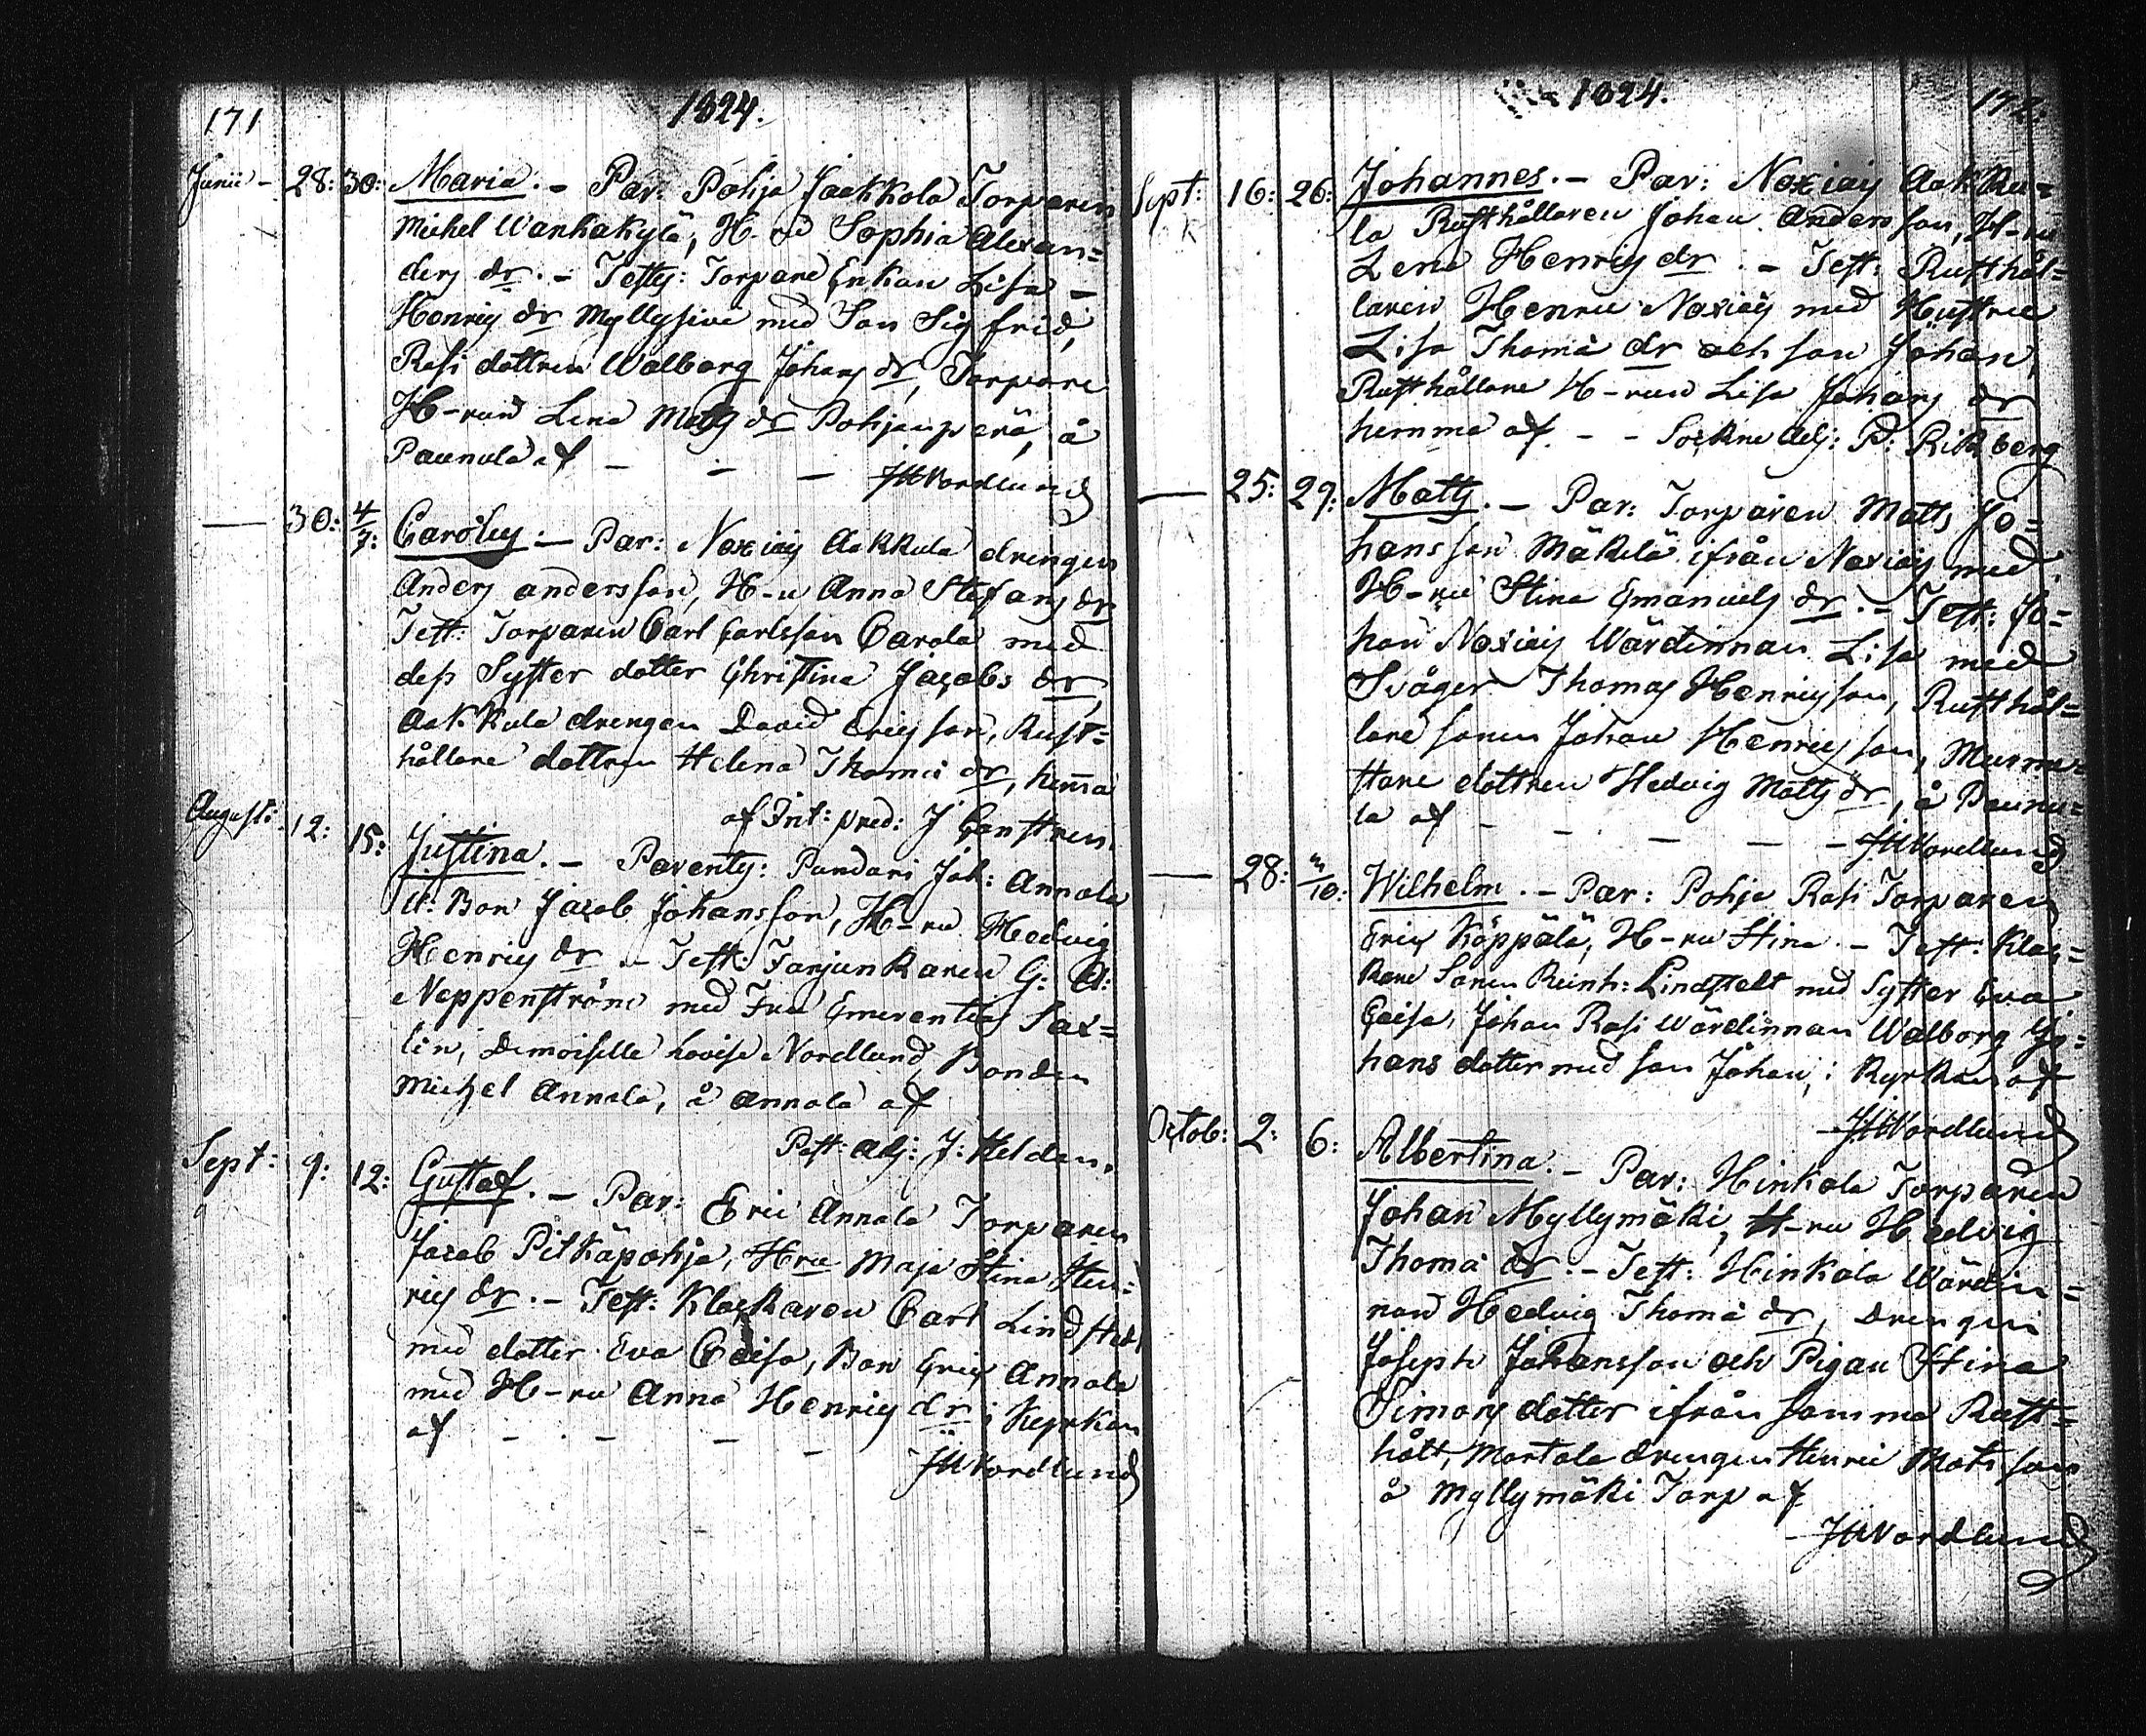 171
1824.
Junii - 28: 30: Maria. - Par: Pohja Jaakkola Torparen
Michel Wanhakylä, H-ru Sophia Alexan=
ders dr. - Testes: Torpare Enkan Lisa -
Henrics dr Myllysivi med Son Sigfrid,
Rasi dottren Walborg Johans dr, Torpare
H-run Lena Matts dr Pohjanperä, å
Paunula af - - - JWNordlund
- 30: 4/7: Carolus: - Par: Noxiais Aakkula drengen
Anders Andersson, H-u Anna Stefans dr
Test: Torparen Carl Carlsson Carola med
dess Syster dotter Christina Jacobs dr,
Aakkula drengen David Ericsson, Rust=
hållare dottren Helena Thomæ dr, hemma
af Int: pred: J Canstren.
Augusti: 12: 15: Justina. - Parentes: Pundari Joh: Annola
It: Bon Jacob Johansson, H-ru Hedvig
Henrics dr - Test: Fanjunkaren G: A:
Neppenström med Fru Emerentia Sax=
lin, Demoiselle Lovisa Nordlund, Bonden
Michel Annala, å Annala af
Past: adj: J: Helden.
Sept: 9: 12: Gustaf. - Par: Eric Annala Torparen
Jacob Pitkäpohja, Hru Maja Stina Hen=
rics dr. - Test: Klockaren Carl Lindstedt
med dotter Eva Caisa, Bon Eric Annala
med H-ru Anna Henrics dr i Kyrkan
af - - - - JWNordlund
1824.
172.
Sept: 16: 26: Johannes. - Par: Noxiais Aakku=
la Rusthållaren Johan Andersson, H-ru
Lena Henrics dr. - Test: Rusthål=
laren Henric Noxiais med Hustru
Lisa Thomæ dr och son Johan,
Rusthållare H-run Lisa Johans dr
hemma af - - Sockne Adj: P: Rikberg
- 25: 29: Matts. - Par: Torparen Matts Jo=
hansson Mäkelä ifrån Noxiais med
H-ru Stina Emanuels dr. - Test: Jo=
han Noxiais Wärdinnan Lisa med
Svåger Thomas Henricsson, Rusthål=
lare sonen Johan Henricsson, Murmä=
stare dottren Hedvig Matts dr, å Paunu=
la af - - - - - JWNordlund
- 28: 3/10: Wilhelm. - Par: Pohja Rasi Torparen
Eric Köppälä, H-ru Stina. - Test: Kloc=
kare Sonen Reinh: Lindstedt med Syster Eva
Caisa, Johan Rasi Wärdinnan Walborg Jo=
hans dotter med son Johan, i Kyrkan af
JWNordlund
Octob: 2: 6: Albertina. - Par: Hinkala Torparen
Johan Myllymäki, H-ru Hedvig
Thomæ dr. - Test: Hinkala Wärdin=
nan Hedvig Thomæ dr, Drengen
Joseph Johansson och Pigan Stina
Simons dotter ifrån samma Rust=
håll, Martala drengen Henric Matsson
å Myllymäki Torp af
JWNordlund